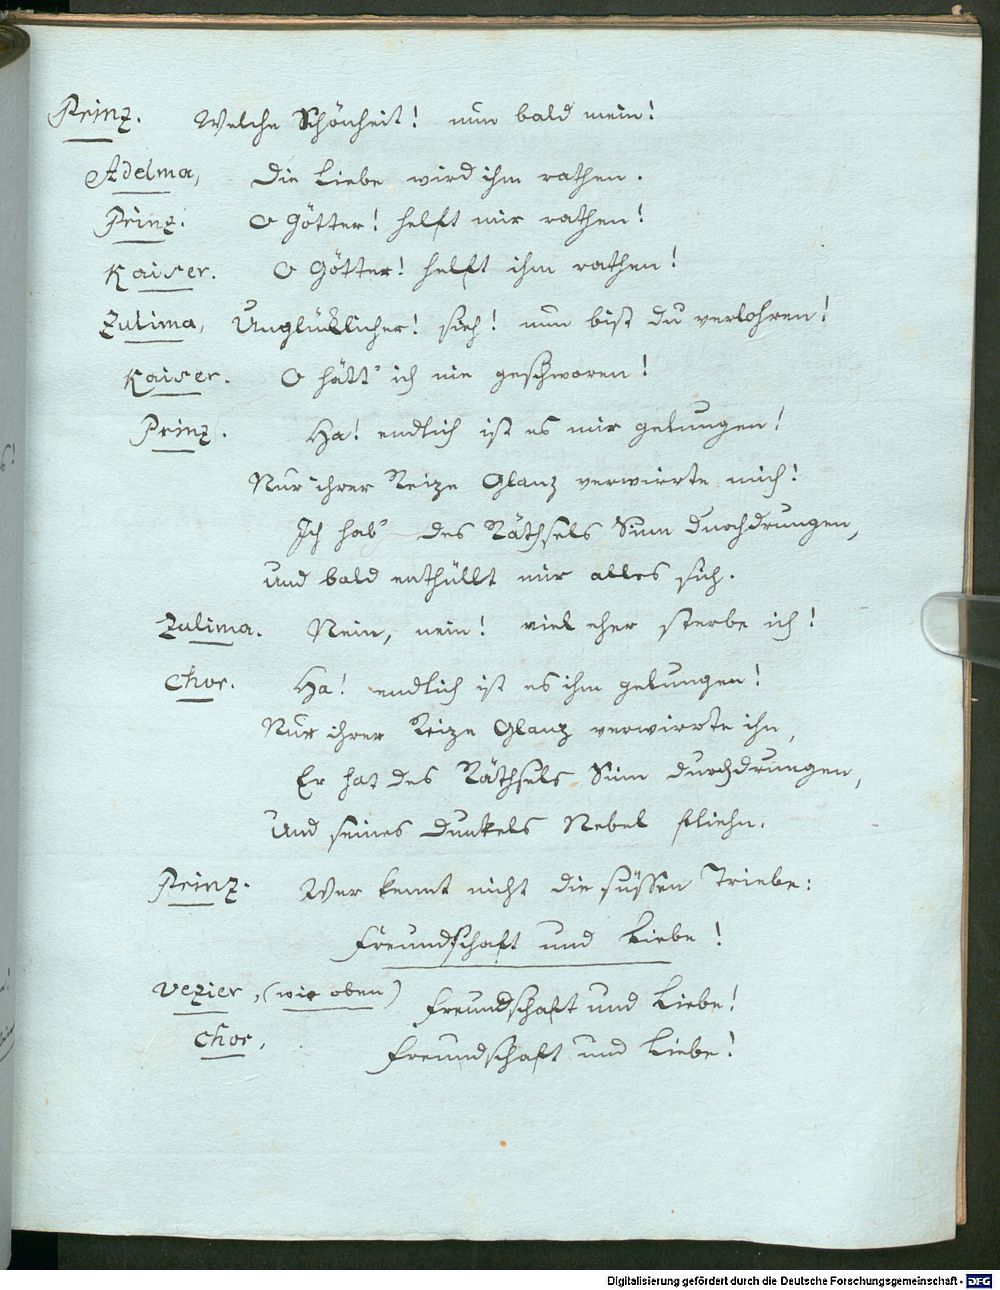 Prinz. Welche Schönheit! nun bald mein!
Adelma, Die Liebe wird ihm rathen.
Prinz. O Götter! helft mir rathen!
Kaiser. O Götter! helft ihm rathen!
Zulima, Unglücklicher! sieh! nun bist du verlohren!
Kaiser. O hätt' ich nie geschworen!
Prinz. Ha! endlich ist es mir gelungen!
Nur ihrer Reize Glanz verwirrte mich!
Ich hab' des Räthsels Sinn durchdrungen,
und bald enthüllt mir alles sich.
Zulima. Nein, nein! viel eher sterbe ich!
Chor. Ha! endlich ist es ihm gelungen!
Nur ihrer Reize Glanz verwirrte ihn,
Er hat des Räthsels Sinn durchdrungen,
Und seines Dunkels Nebel fliehn.
Prinz. Wer kennt nicht die süssen Triebe:
Freundschaft und Liebe!
Vezier, (wie oben) Freundschaft und Liebe!
Chor, Freundschaft und Liebe!
Digitalisierung gefördert durch die Deutsche Forschungsgemeinschaft - DFG